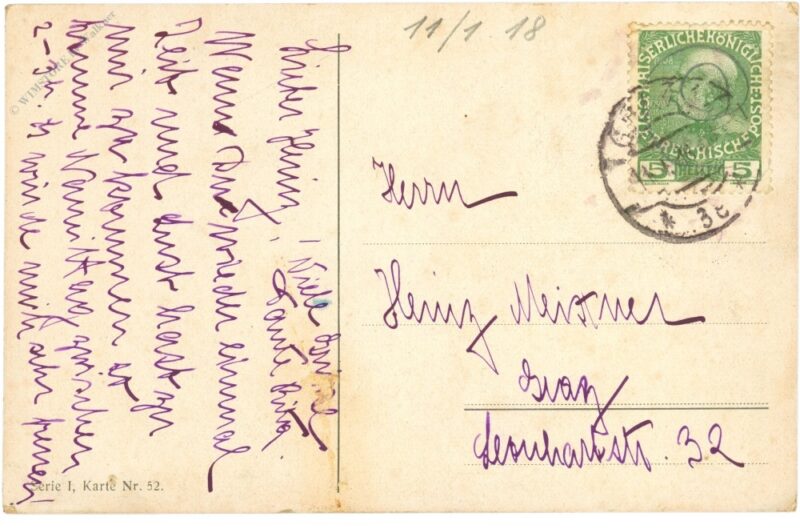 11/1 18
Lieber Heinz!
Wenn Du wieder einmal
Zeit und Lust hast zu
mir zu kommen so
komme Nachmittag zwischen
2-3h. Es würde mich sehr freuen!
Viele Grüße
Tante
KAISERLICHE KÖNIGLICHE ÖSTERREICHISCHE POST
5 HELLER 5
* 3e *
Herrn
Heinz Meixner
Graz
Leonhardstr. 32
Serie I, Karte Nr. 52.
© WIMSTORE